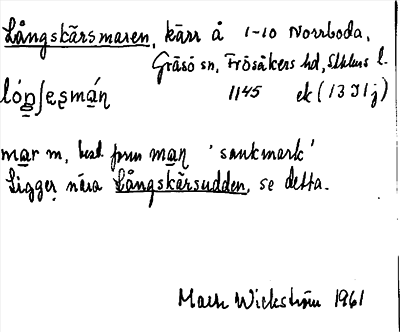 Långskärsmaren, kärr å 1-10 Norrboda,
Gräsö sn, Frösåkers hd, Sthlms l.
lóŋʃesmáṇ 1145 ek (13 I 1 j)
mar m, best. form maṇ 'sankmark'
Ligger nära Långskärsudden, se detta.
Mats Wickström 1961